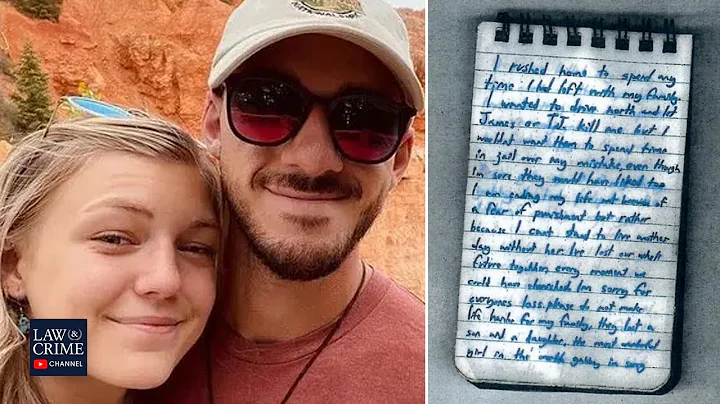 NATIONAL
LAW &
CRIME
CHANNEL
I rushed home to spend any
time I had left with my family.
I wanted to drive north and let
James or TJ kill me but I
wouldnt want them to spend time
in jail over my mistake, even though
Im sure they would have liked too
I am ending my life not because of
a fear of punishment but rather
because I cant stand to live another
day without her. Ive lost our whole
future together, every moment we
could have cherished. Im sorry for
everyones loss. please do not make
life harder for my family, they lost a
son and a daughter. the most wonderful
girl in the world. Im sorry